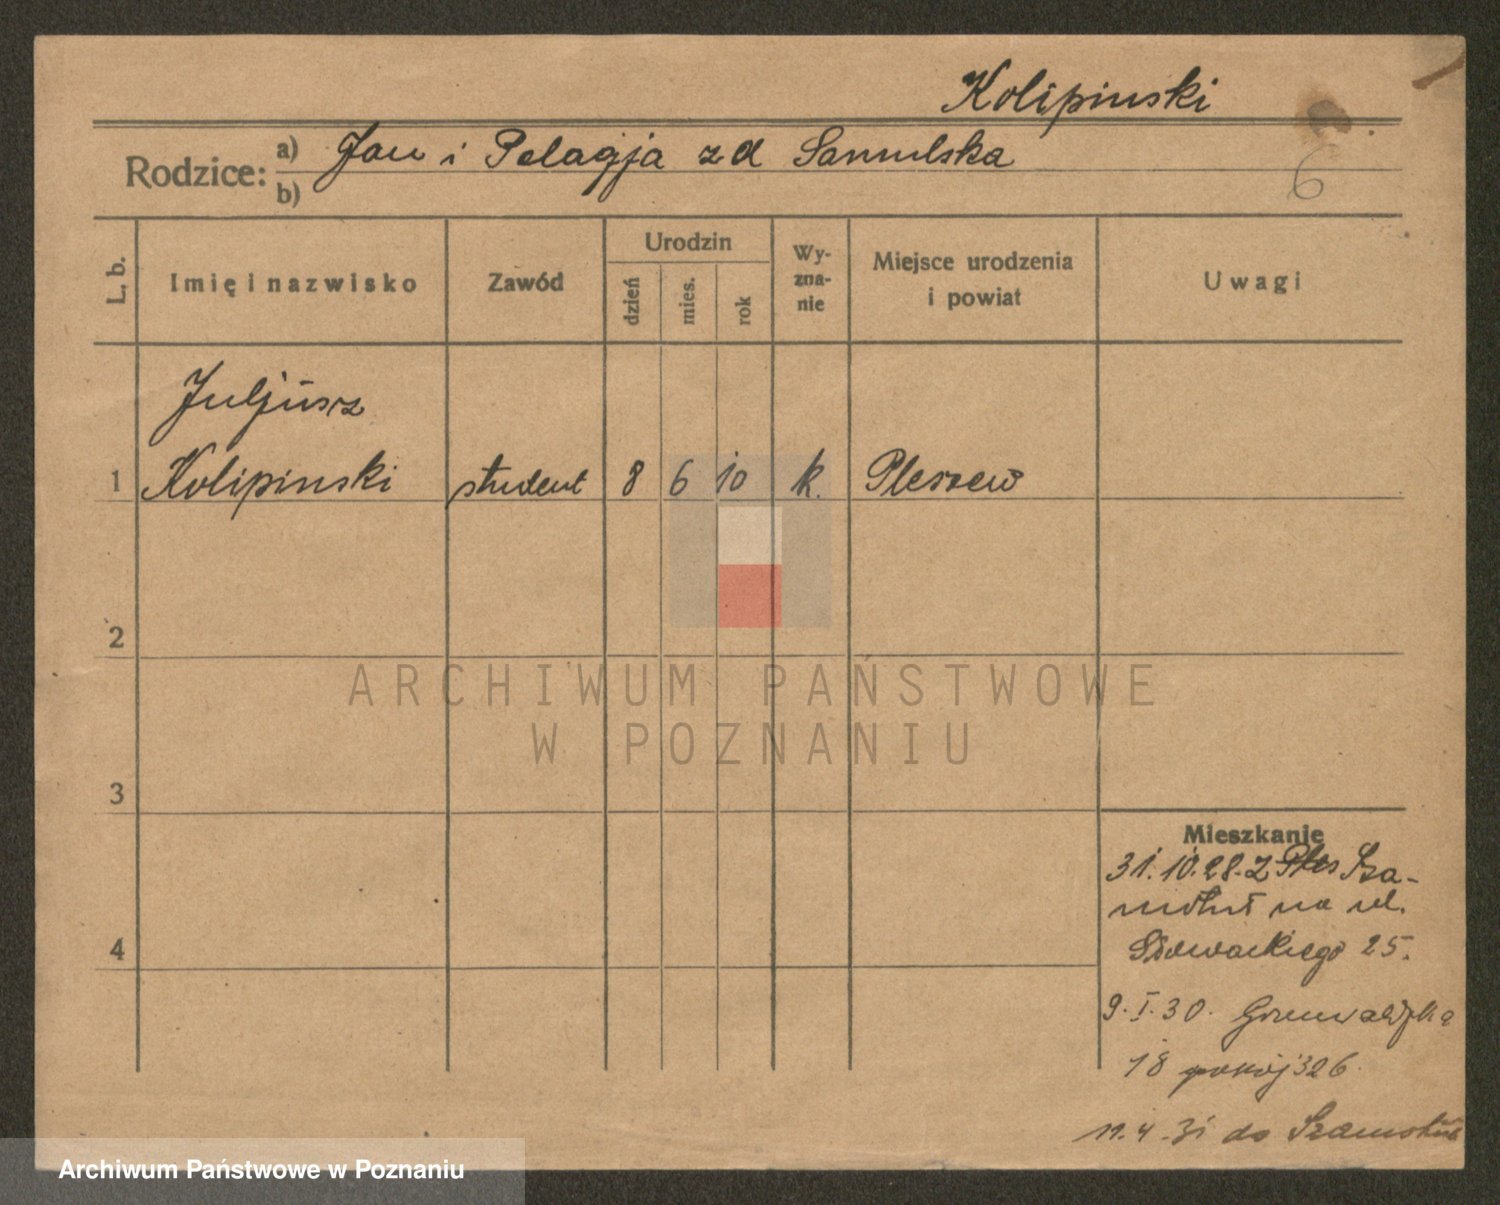 Kolipinski
Rodzice: a) Jan i Pelagja zd Samulska
b)
L. b.
Imię i nazwisko
Zawód
Urodzin
dzień
mies.
rok
Wy-
zna-
nie
Miejsce urodzenia
i powiat
Uwagi
6
Juljusz
1 Kolipinski student 8 6 10 k. Pleszew
2
3
4
Mieszkanie
31.10.28. z Sza-
motuł na ul.
Słowackiego 25.
9.I.30. Grunwaldzka
18 pokój 326.
11.4.31 do Szamotuł
ARCHIWUM PAŃSTWOWE
W POZNANIU
Archiwum Państwowe w Poznaniu